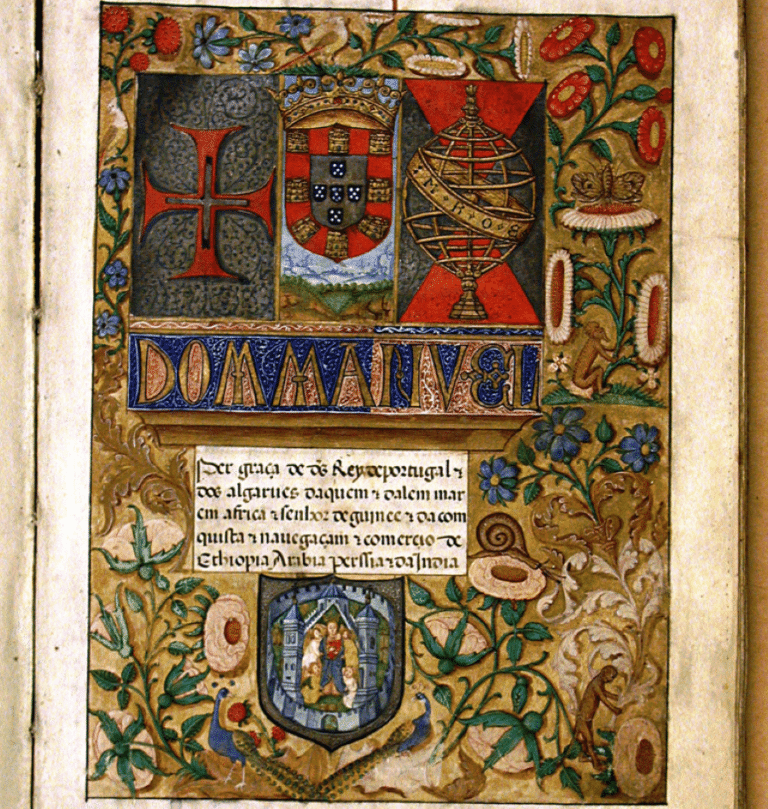 DOM MANVEL
Per graça de d̃s Rey de portugal ⁊
dos algarues daquem ⁊ dalem mar
em africa ⁊ senhor de guinee ⁊ da com
quista ⁊ nauegaçam ⁊ comercio de
Ethiopia Arabia perssia ⁊ da India